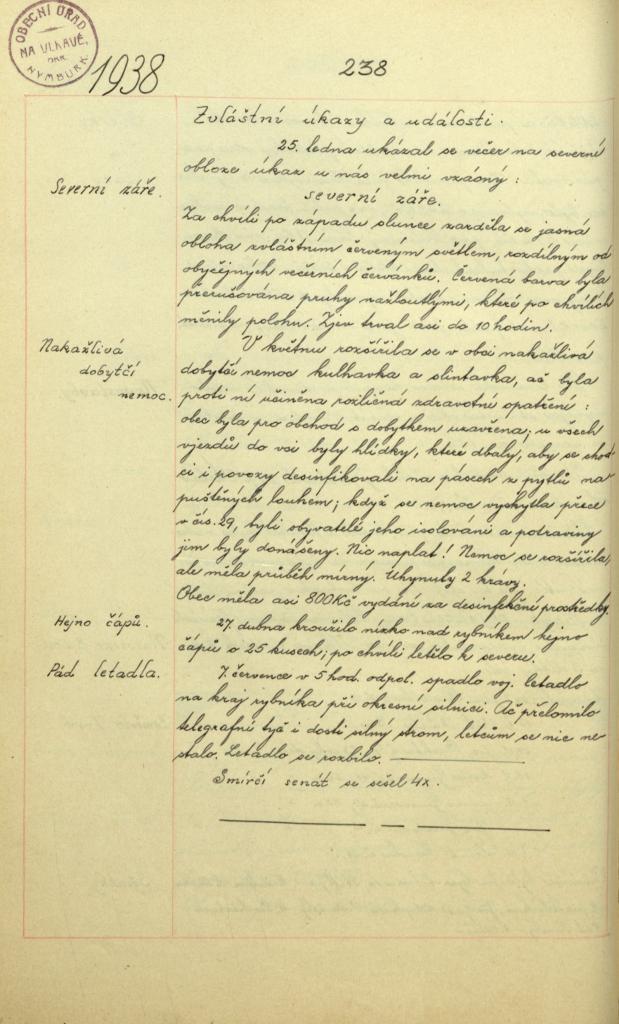 OBECNÍ ÚŘAD
NA VLKAVĚ,
OKR.
NYMBURK
1938
238
Zvláštní úkazy a události.
25. ledna ukázal se večer na severní
obloze úkaz u nás velmi vzácný:
Severní záře.
severní záře.
Za chvíli po západu slunce zarděla se jasná
obloha zvláštním červeným světlem, rozdílným od
obyčejných večerních červánků. Červená barva byla
přerušována pruhy nažloutlými, které po chvílích
měnily polohu. Zjev trval asi do 10 hodin.
Nakažlivá
dobytčí
nemoc.
V květnu rozšířila se v obci nakažlivá
dobytčí nemoc kulhavka a slintavka, ač byla
proti ní učiněna rozličná zdravotní opatření:
obec byla pro obchod s dobytkem uzavřena; u všech
vjezdů do vsi byly hlídky, které dbaly, aby se chod-
ci i povozy desinfikovali na pásech z pytlů na
puštěných louhem; když se nemoc vyskytla přece
v čís. 29, byli obyvatelé jeho isolováni a potraviny
jim byly donášeny. Nic naplat! Nemoc se rozšířila,
ale měla průběh mírný. Uhynuly 2 krávy.
Obec měla asi 800 Kč vydání za desinfekční prostředky.
Hejno čápů.
27. dubna kroužilo nízko nad rybníkem hejno
čápů o 25 kusech; po chvíli letělo k severu.
Pád letadla.
7. července v 5 hod. odpol. spadlo voj. letadlo
na kraj rybníka při okresní silnici. Ač přelomilo
telegrafní tyč i dosti silný strom, letcům se nic ne
stalo. Letadlo se rozbilo.
Smírčí senát se sešel 4x.